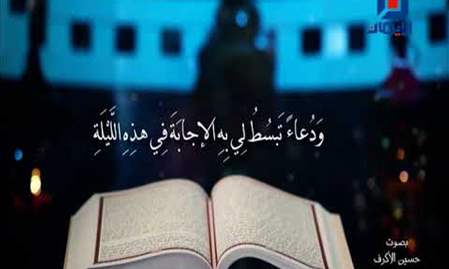 وَدُعاءً تَبسُطُ لِي بِهِ الإجابَةَ فِي هذِهِ اللَّيْلَةِ
بصوت
حسين الأكرف